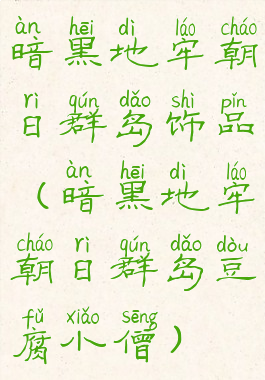 àn hēi dì láo cháo
暗黑地牢朝
rì qún dǎo shì pǐn
日群岛饰品
àn hēi dì láo
（暗黑地牢
cháo rì qún dǎo dòu
朝日群岛豆
fǔ xiǎo sēng
腐小僧）